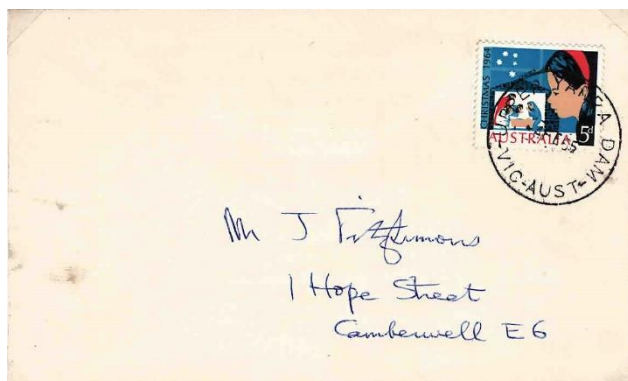 CHRISTMAS 1964
AUSTRALIA 5d
UPPER YARRA DAM
VIC-AUST-
Mr J Fitzsimons
1 Hope Street
Camberwell E6